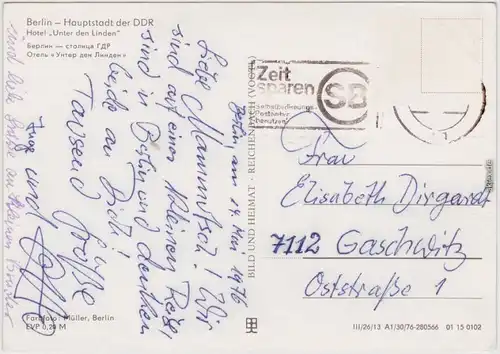 Berlin – Hauptstadt der DDR
Hotel „Unter den Linden"
Берлин — столица ГДР
Отель «Унтер ден Линден»
Berlin, am 14. Mai 1976
Liebe Mammutsch! Wir
sind auf einer kleinen Reise,
sind in Berlin und denken
beide an Dich!
Tausend Grüße
Inge und
sind liebe Grüße an
Farbfoto: Müller, Berlin
EVP 0,20 M
BILD UND HEIMAT · REICHENBACH (VOGTL)
Zeit
sparen
SB
Selbstbedienungs-
Postämter
benutzen
Frau
Elisabeth Dirgardt
7112 Gaschwitz
Oststraße 1
III/26/13 A1/30/76-280566 01 15 0102